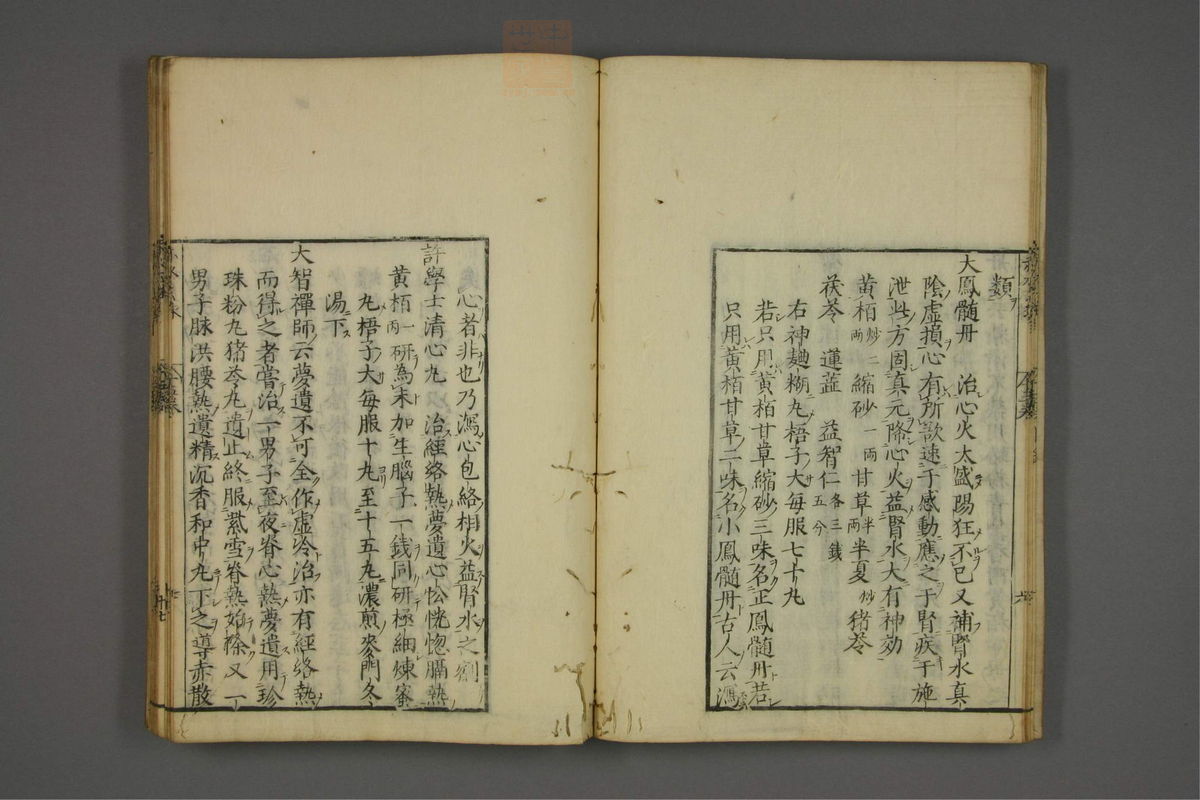 類
大鳳髓丹　治心火太盛陽狂不已又補腎水真
陰虛損心有所欲速于感動應之于腎疾于施
泄此方固真元降心火益腎水大有神効
黄栢炒二両　縮砂一両　甘草半両　半夏炒　猪苓
茯苓　蓮蕋　益智仁各三錢五分
右神麯糊丸梧子大每服七十丸
若只用黄栢甘草縮砂三味名正鳳髓丹若
只用黄栢甘草二味名小鳳髓丹古人云瀉
心者非也乃瀉心包絡相火益腎水之劑
許學士清心丸　治經絡熱夢遺心忪恍惚膈熱
黄栢一両　研為末加生腦子一錢同研極細煉蜜
丸梧子大每服十丸至十五丸濃煎麥門冬
湯下
大智禪師云夢遺不可全作虛冷治亦有經絡熱
而得之者嘗治一男子至夜脊心熱夢遺用珍
珠粉丸猪苓丸遺止終服紫雪脊熱始除又一
男子脉洪腰熱遺精沉香和中丸下之導赤散